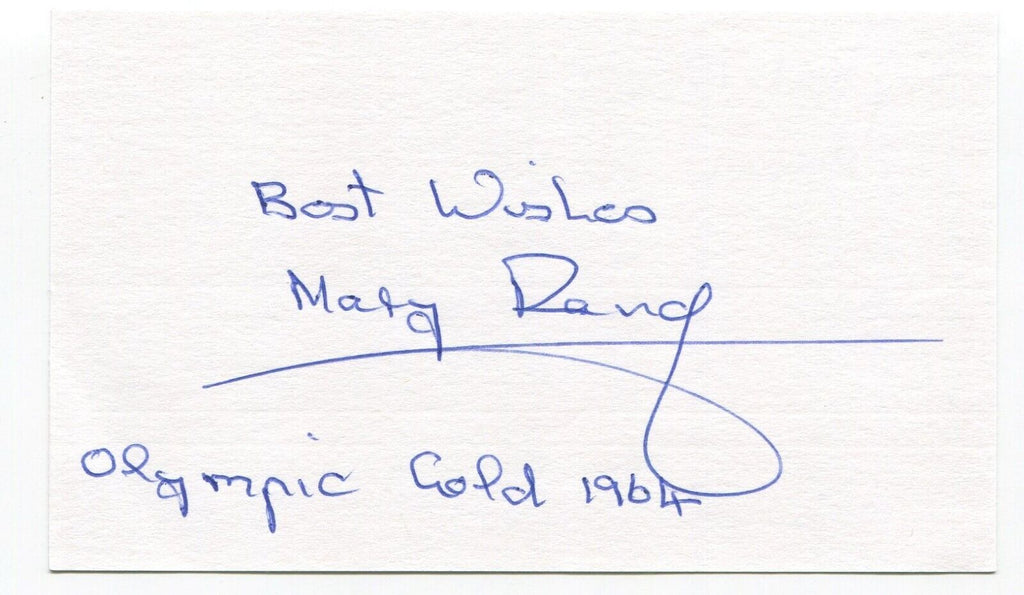 Best Wishes
Mary Rand
Olympic Gold 1964